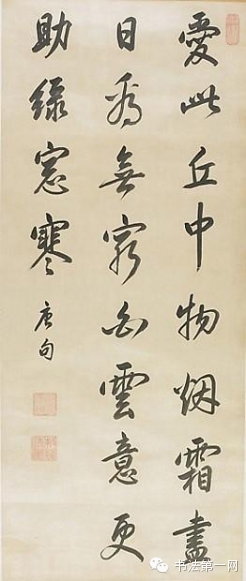 愛此丘中物烟霜盡
日看無窮白雲意更
助緑窓寒 唐句
书法第一网